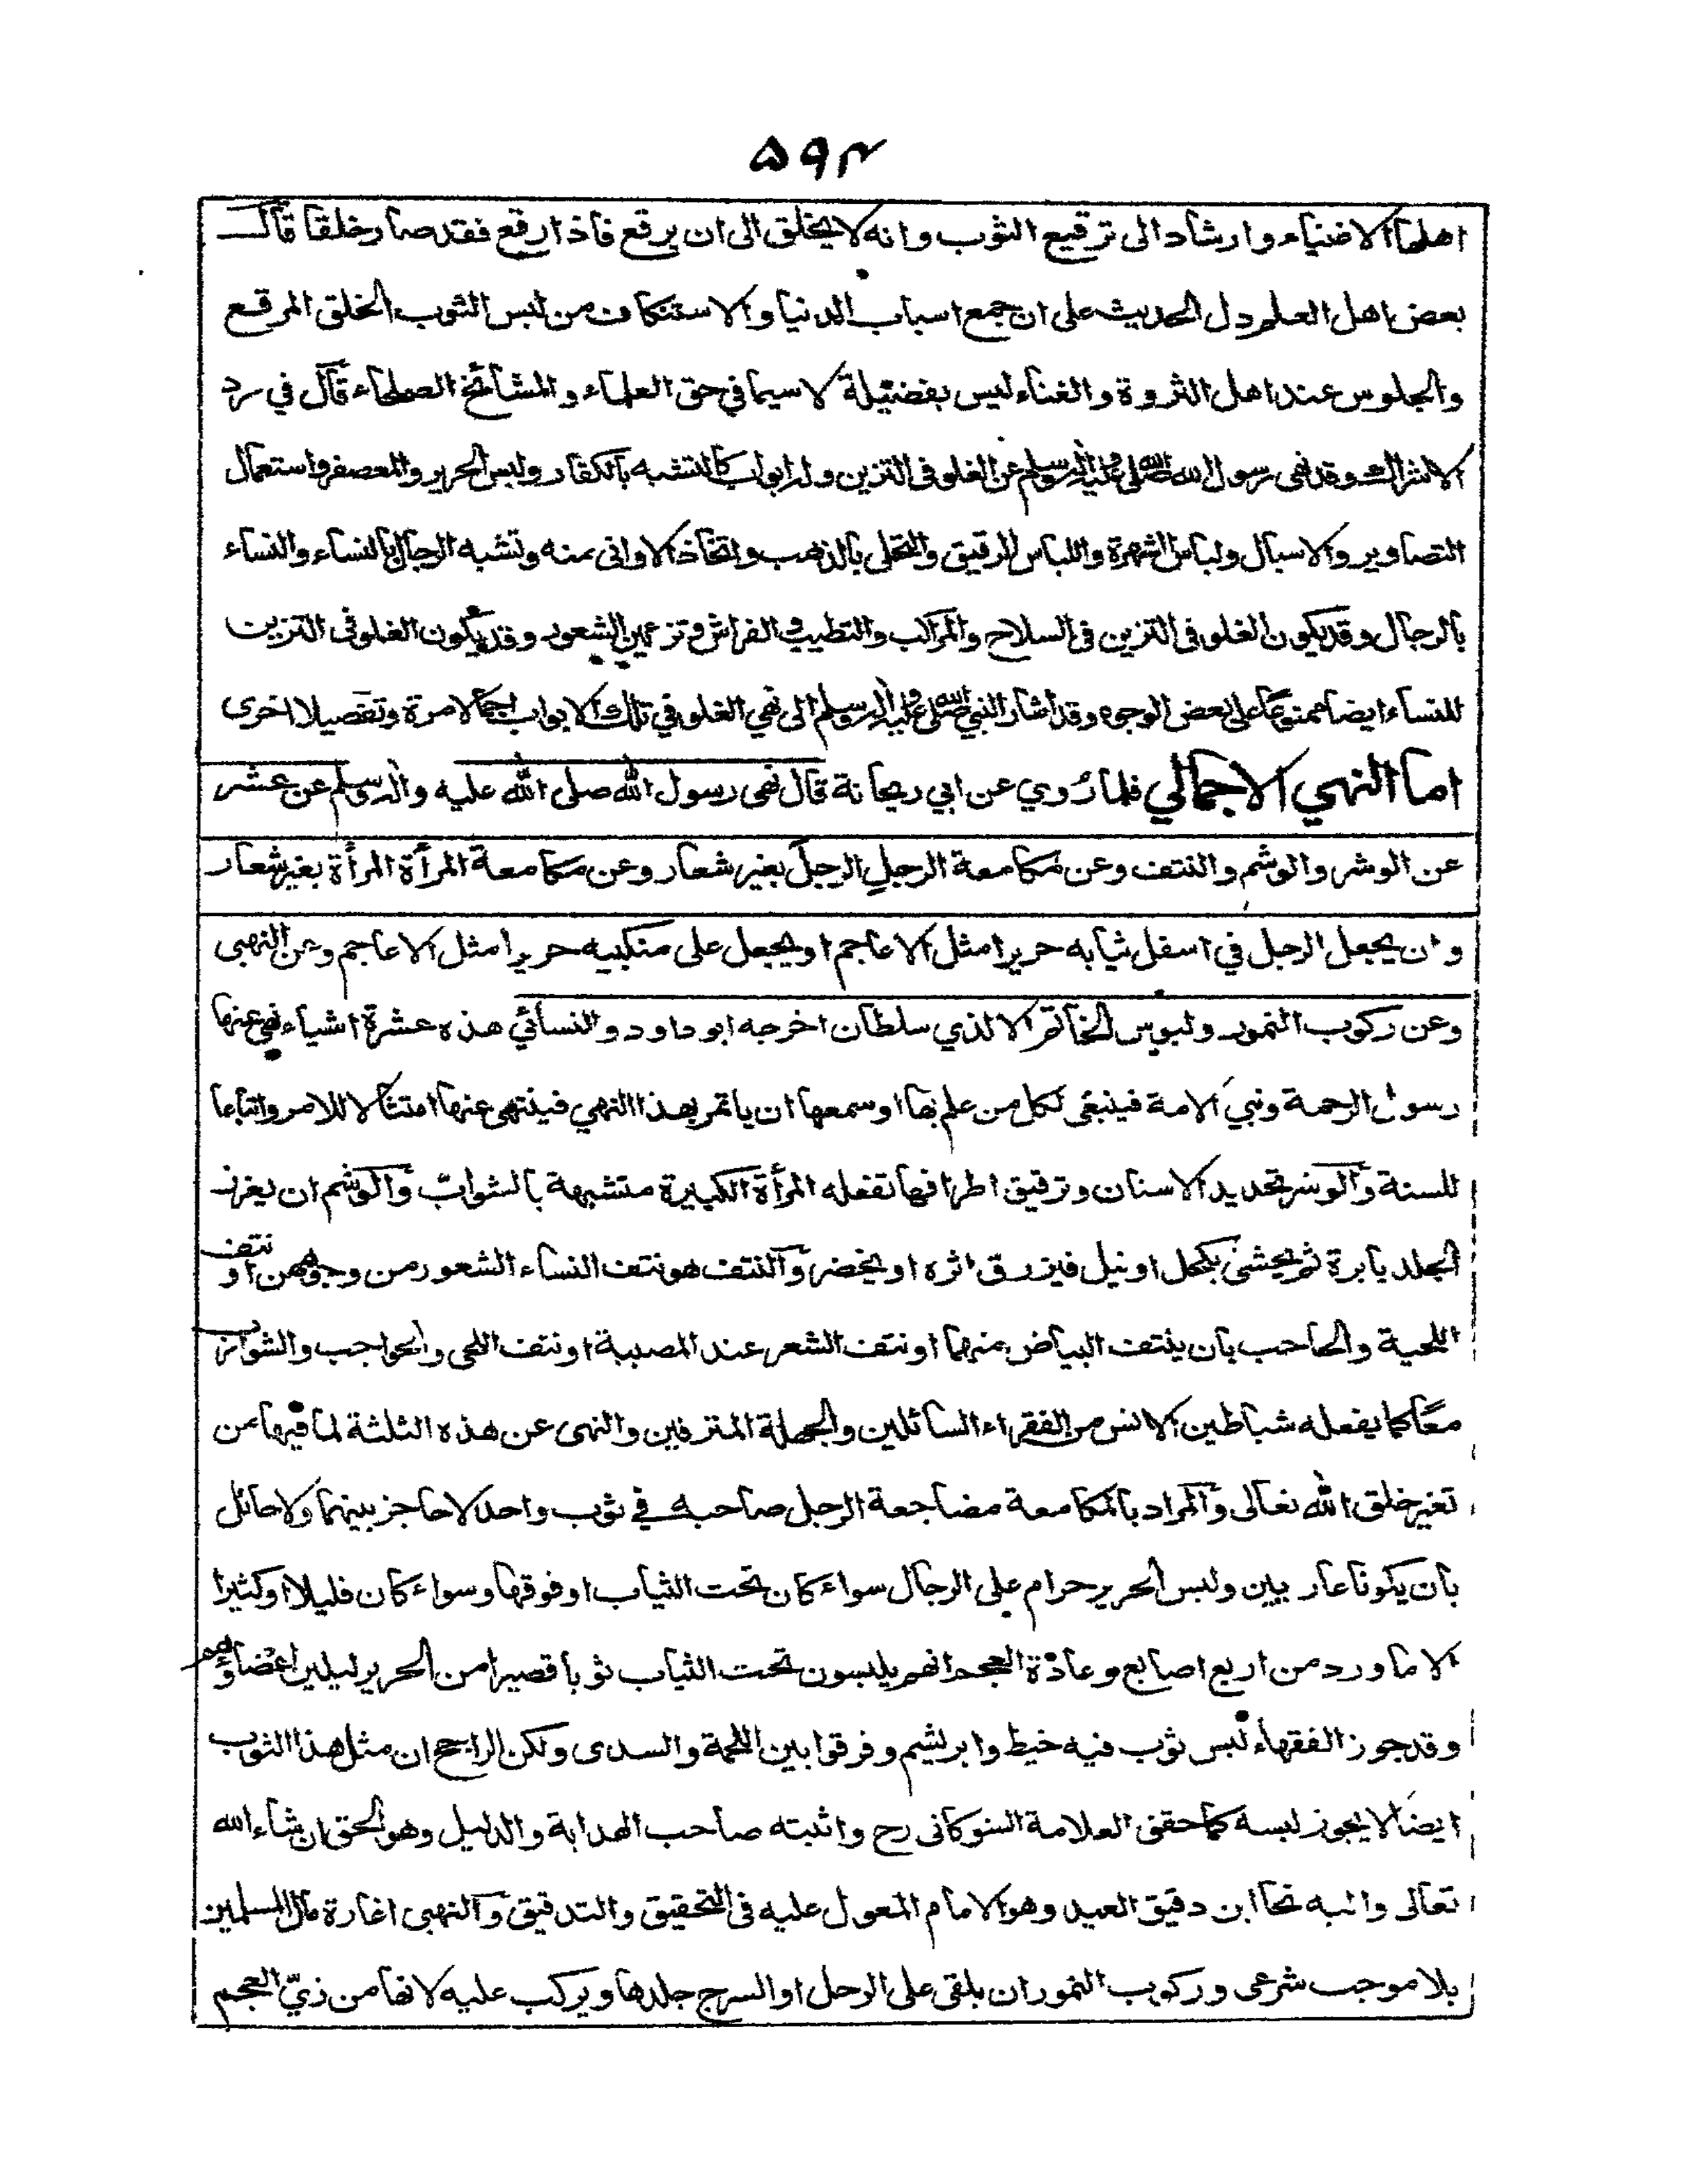 ۵۹۴
اهلها الاغنياء وارشاد الى ترقيع الثوب وانه لا يخلق الى ان يرقع فاذا رقع فقد صار خلقا قال
بعض اهل العلم دل الحديث على ان جمع اسباب الدنيا والاستنكاف من لبس الثوب الخلق المرقع
والجلوس عند اهل الثروة والغناء ليس بفضيلة لا سيما في حق العلماء والمشائخ الصلحاء قال في رد
الاشراك وقد نهى رسول الله صلى الله عليه واله وسلم عن الغلو فى التزين وله ابواب كالتشبه بالكفار ولبس الحرير والمعصفر واستعمال
التصاوير والاسبال ولباس الشهرة واللباس الرقيق والتحلى بالذهب واتخاذ الاوانى منه وتشبه الرجال بالنساء والنساء
بالرجال وقد يكون الغلو فى التزين فى السلاح والمراكب والتطيب والفراش وتزعمين الشعور وقد يكون الغلو فى التزين
للنساء ايضا ممنوعا على بعض الوجوه وقد اشار النبي صلى الله عليه واله وسلم الى نهي الغلو في تلك الابواب اجمالا مرة وتفصيلا اخرى
اما النهي الاجمالي فلما رُوي عن ابي ريحانة قال نهى رسول الله صلى الله عليه واله وسلم عن عشر
عن الوشر والوشم والنتف وعن مكامعة الرجلِ الرجلَ بغير شعار وعن مكامعة المرأة المرأة بغير شعار
وان يجعل الرجل في اسفل ثيابه حريرا مثل الاعاجم او يجعل على منكبيه حريرا مثل الاعاجم وعن النهبى
وعن ركوب النمور ولبوس الخاتم الا لذي سلطان اخرجه ابو داود والنسائي هذه عشرة اشياء نهى عنها
رسول الرحمة ونبي الامة فينبغى لكل من علم بها او سمعها ان ياتمر بهذا النهي فينتهى عنها امتثالا للامر واتباعا
للسنة والوشر تحديد الاسنان وترقيق اطرافها تفعله المرأة الكبيرة متشبهة بالشوابّ والوشم ان يغرز
الجلد بابرة ثم يحشى بكحل او نيل فيزرق اثره او يخضر والنتف هو نتف النساء الشعور من وجوههن او نتف
اللحية والحاجب بان ينتف البياض منهما او نتف الشعر عند المصيبة او نتف اللحى والحواجب والشوارب
معًا كما يفعله شياطين الانس من الفقراء السائلين والجهلة المترفين والنهى عن هذه الثلثة لما فيها من
تغير خلق الله تعالى والمراد بالمكامعة مضاجعة الرجل صاحبه في ثوب واحد لا حاجز بينهما ولا حائل
بان يكونا عاريين ولبس الحرير حرام على الرجال سواء كان تحت الثياب او فوقها وسواء كان قليلا او كثيرا
الا ما ورد من اربع اصابع وعادة العجم انهم يلبسون تحت الثياب ثوبا قصيرا من الحرير ليلين اعضاؤهم
وقد جوز الفقهاء لبس ثوب فيه خيط وابريشم وفرقوا بين اللحمة والسدى ولكن الراجح ان مثل هذا الثوب
ايضا لا يجوز لبسه كما حققه العلامة الشوكانى رح واثبته صاحب الهداية والدليل وهو الحق ان شاء الله
تعالى واليه نحا ابن دقيق العيد وهو الامام المعول عليه فى التحقيق والتدقيق والنهبى اغارة مال المسلمين
بلا موجب شرعى وركوب النمور ان يلقى على الرحل او السرج جلدها ويركب عليه لانها من زيّ العجم